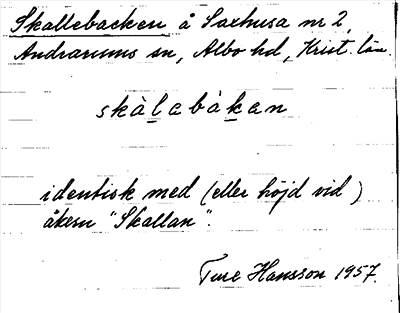 Skallebacken å Saxhusa nr 2
Andrarums sn, Albo hd, Krist. län.
skàlebàken
identisk med (eller höjd vid)
åkern "Skallan".
Ture Hansson 1957.